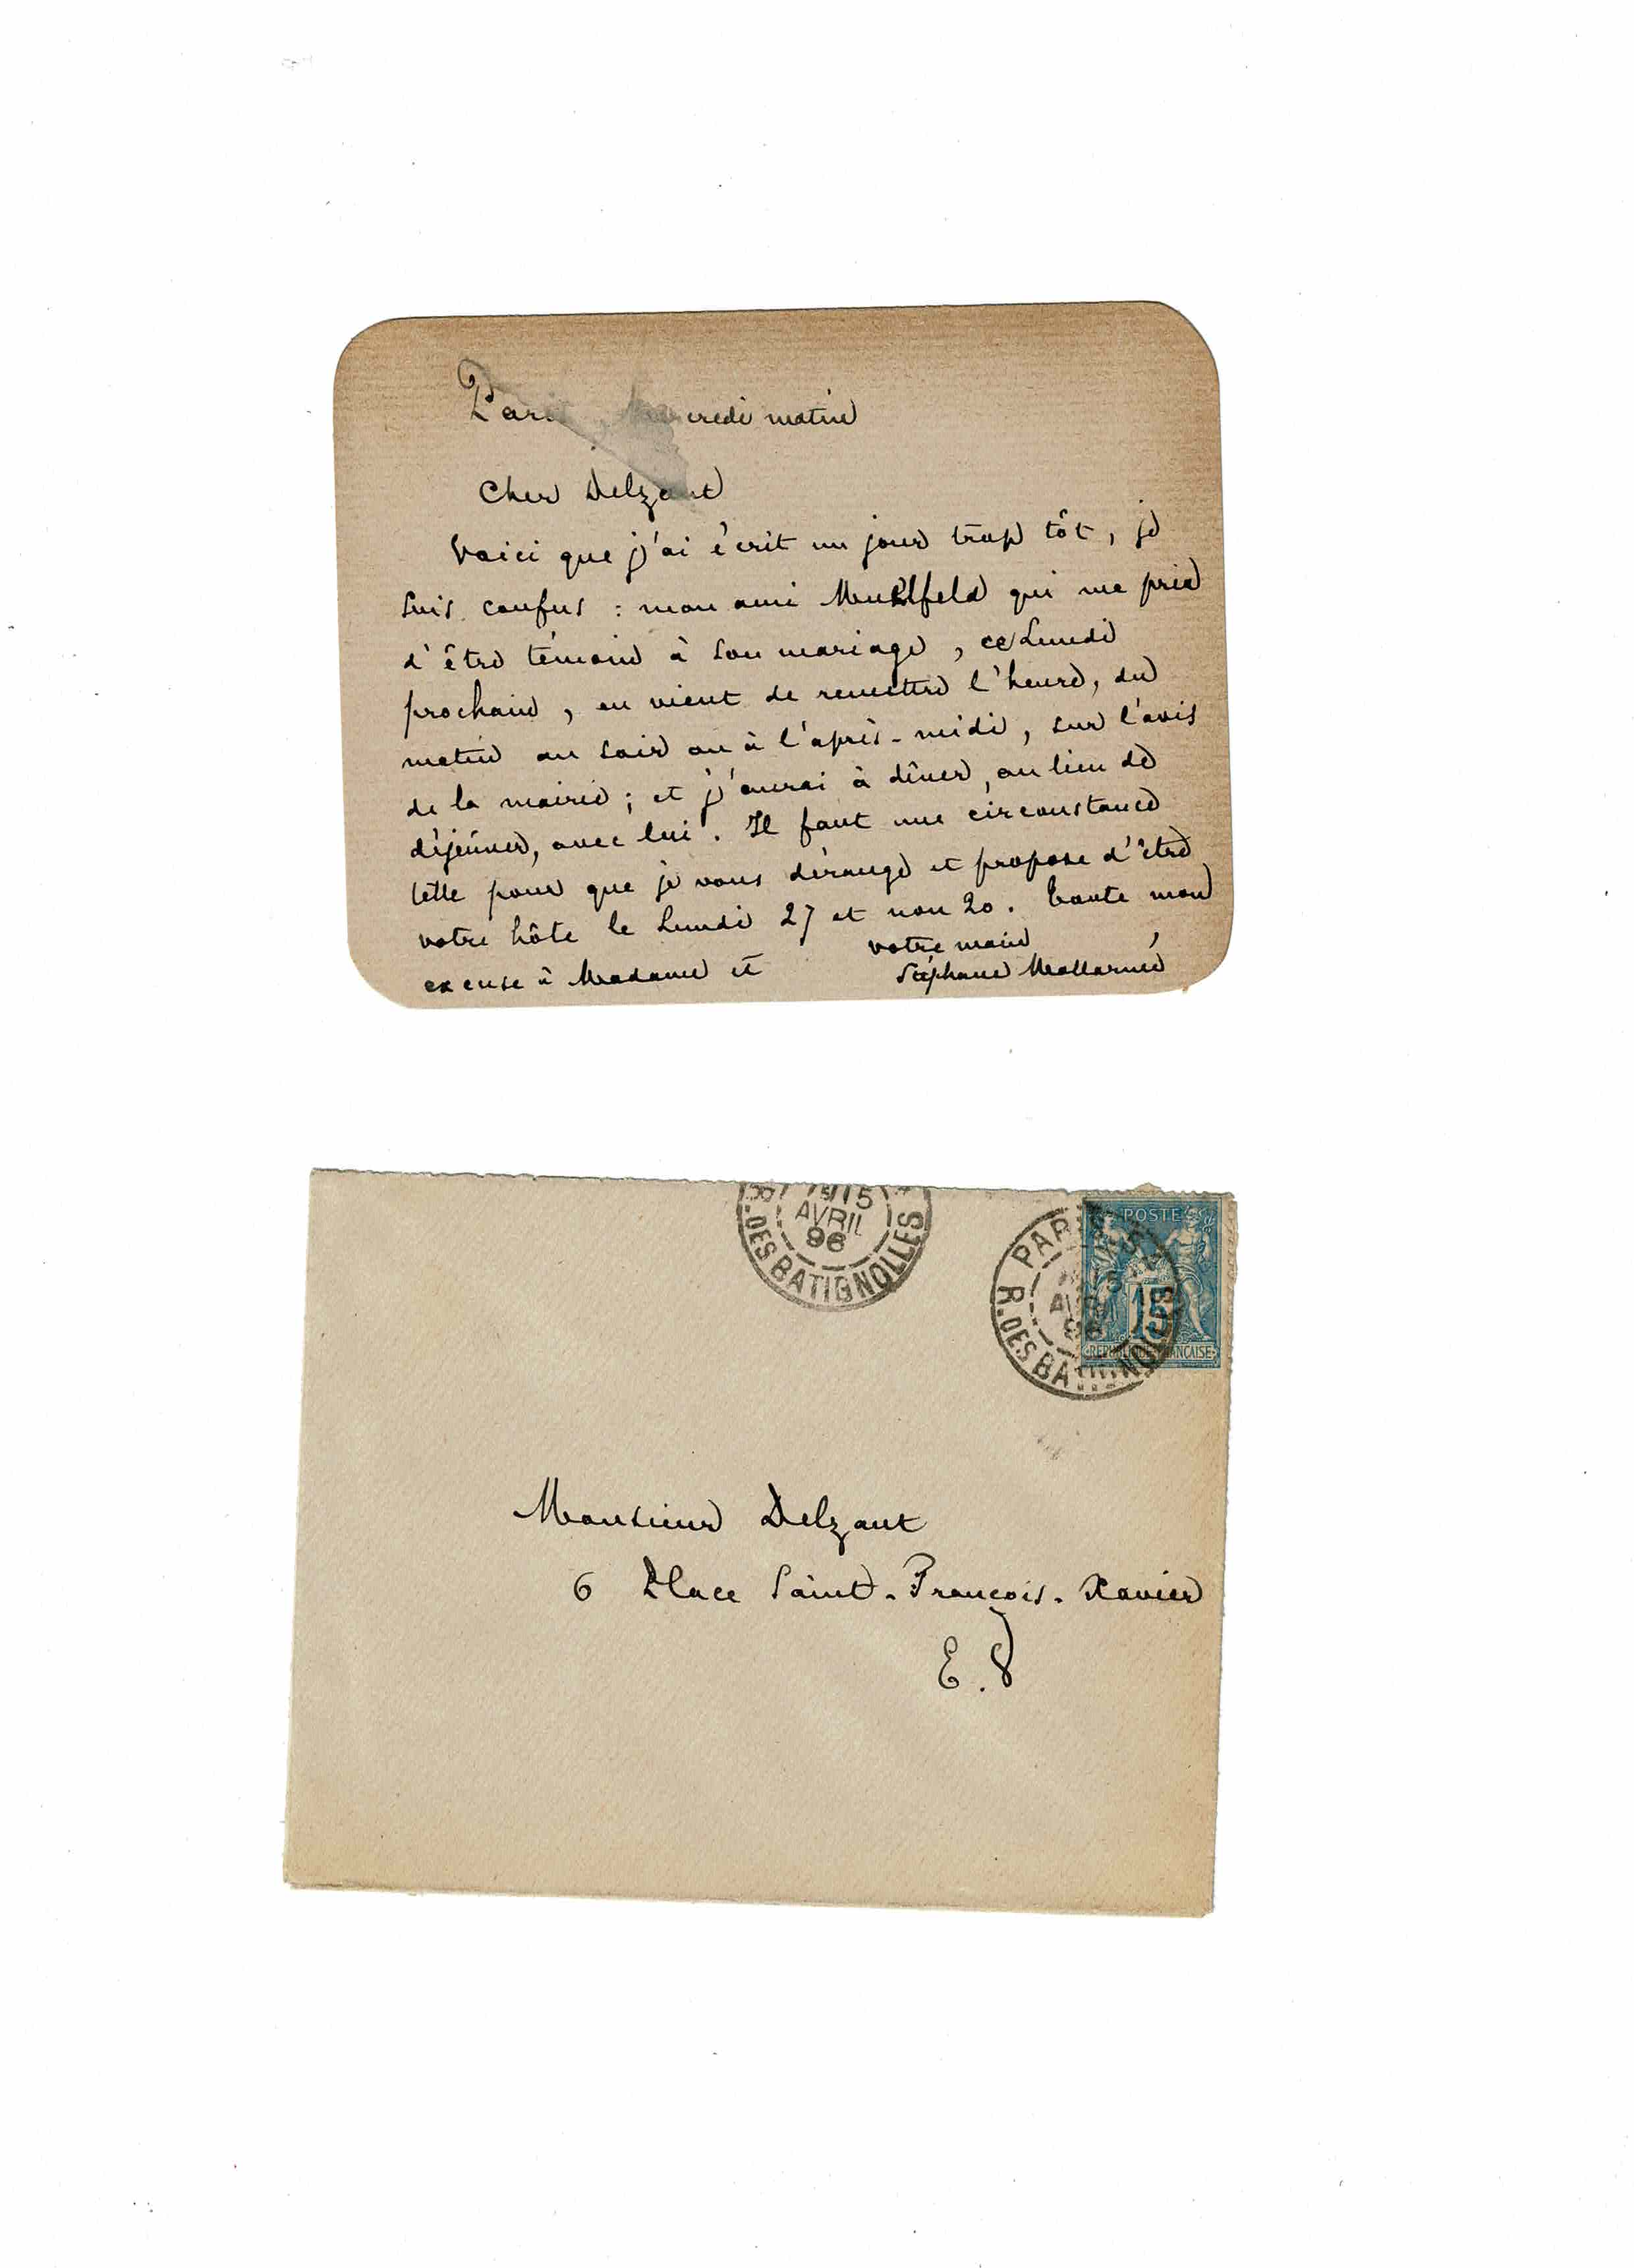 Paris, Mercredi matin
Cher Delzant
Voici que j'ai écrit un jour trop tôt, je
suis confus : mon ami Muhlfeld qui me prie
d'être témoin à son mariage, ce Lundi
prochain, en vient de remettre l'heure, du
matin au soir ou à l'après-midi, sur l'avis
de la mairie ; et j'aurai à dîner, au lieu de
déjeûner, avec lui. Il faut une circonstance
telle pour que je vous dérange et propose d'être
votre hôte le Lundi 27 et non 20. Toute mon
excuse à Madame et votre main
Stéphane Mallarmé
15
AVRIL
96
R. DES BATIGNOLLES
PARIS
R. DES BATIGNOLLES
15
AVRIL
96
POSTES
15
REPUBLIQUE FRANÇAISE
Monsieur Delzant
6 Place Saint-François-Xavier
E.V